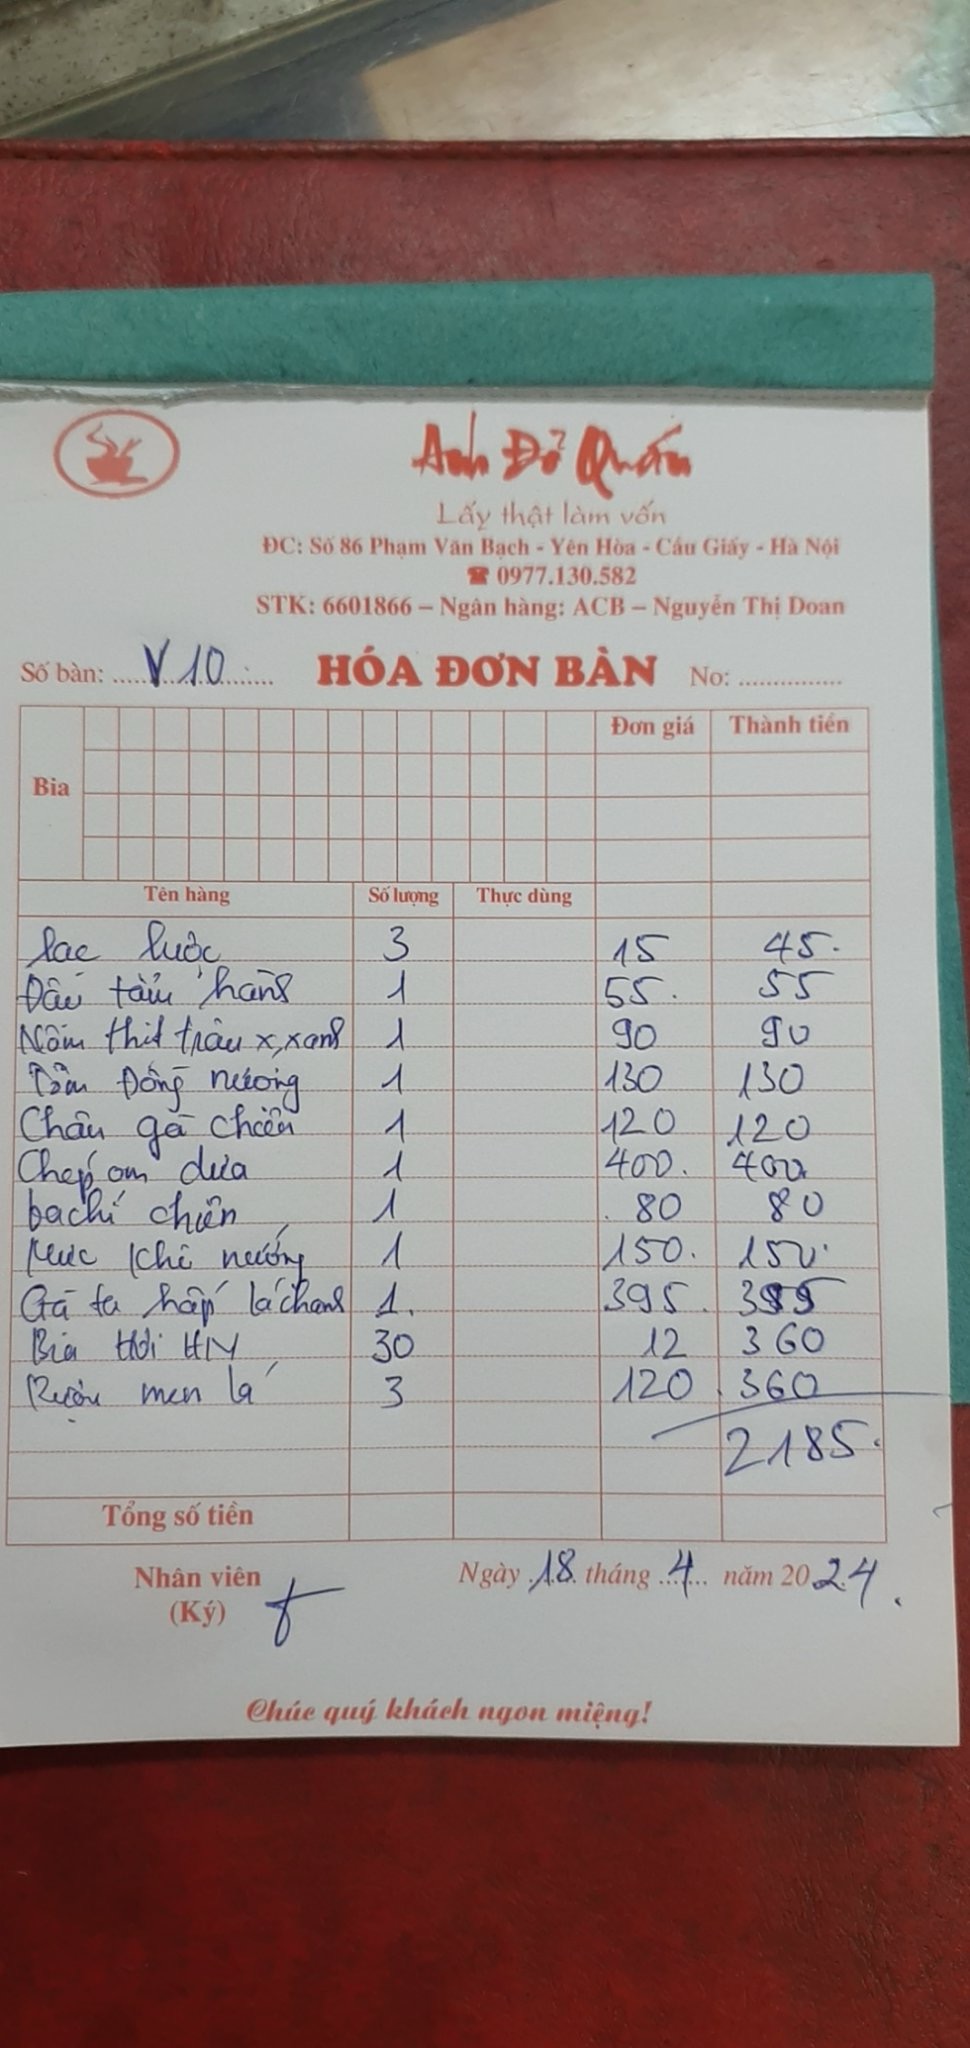 Anh Đỏ Quán
Lấy thật làm vốn
ĐC: Số 86 Phạm Văn Bạch - Yên Hòa - Cầu Giấy - Hà Nội
☎ 0977.130.582
STK: 6601866 – Ngân hàng: ACB – Nguyễn Thị Doan
Số bàn: V10 HÓA ĐƠN BÀN No:
Đơn giá Thành tiền
Bia
Tên hàng Số lượng Thực dùng
Lạc luộc 3 15 45.
Đậu tẩm hành 1 55. 55
Nộm thịt trâu x,xanh 1 90 90
Đồng nướng 1 130 130
Chân gà chiên 1 120 120
Chép om dưa 1 400. 400
ba chỉ chiên 1 80 80
Mực khô nướng 1 150. 150.
Gà ta hấp lá chanh 1. 395. 395
Bia Hơi HN 30 12 360
Rượu men lá 3 120 360
2185.
Tổng số tiền
Nhân viên Ngày 18 tháng 4 năm 2024.
(Ký)
Chúc quý khách ngon miệng!